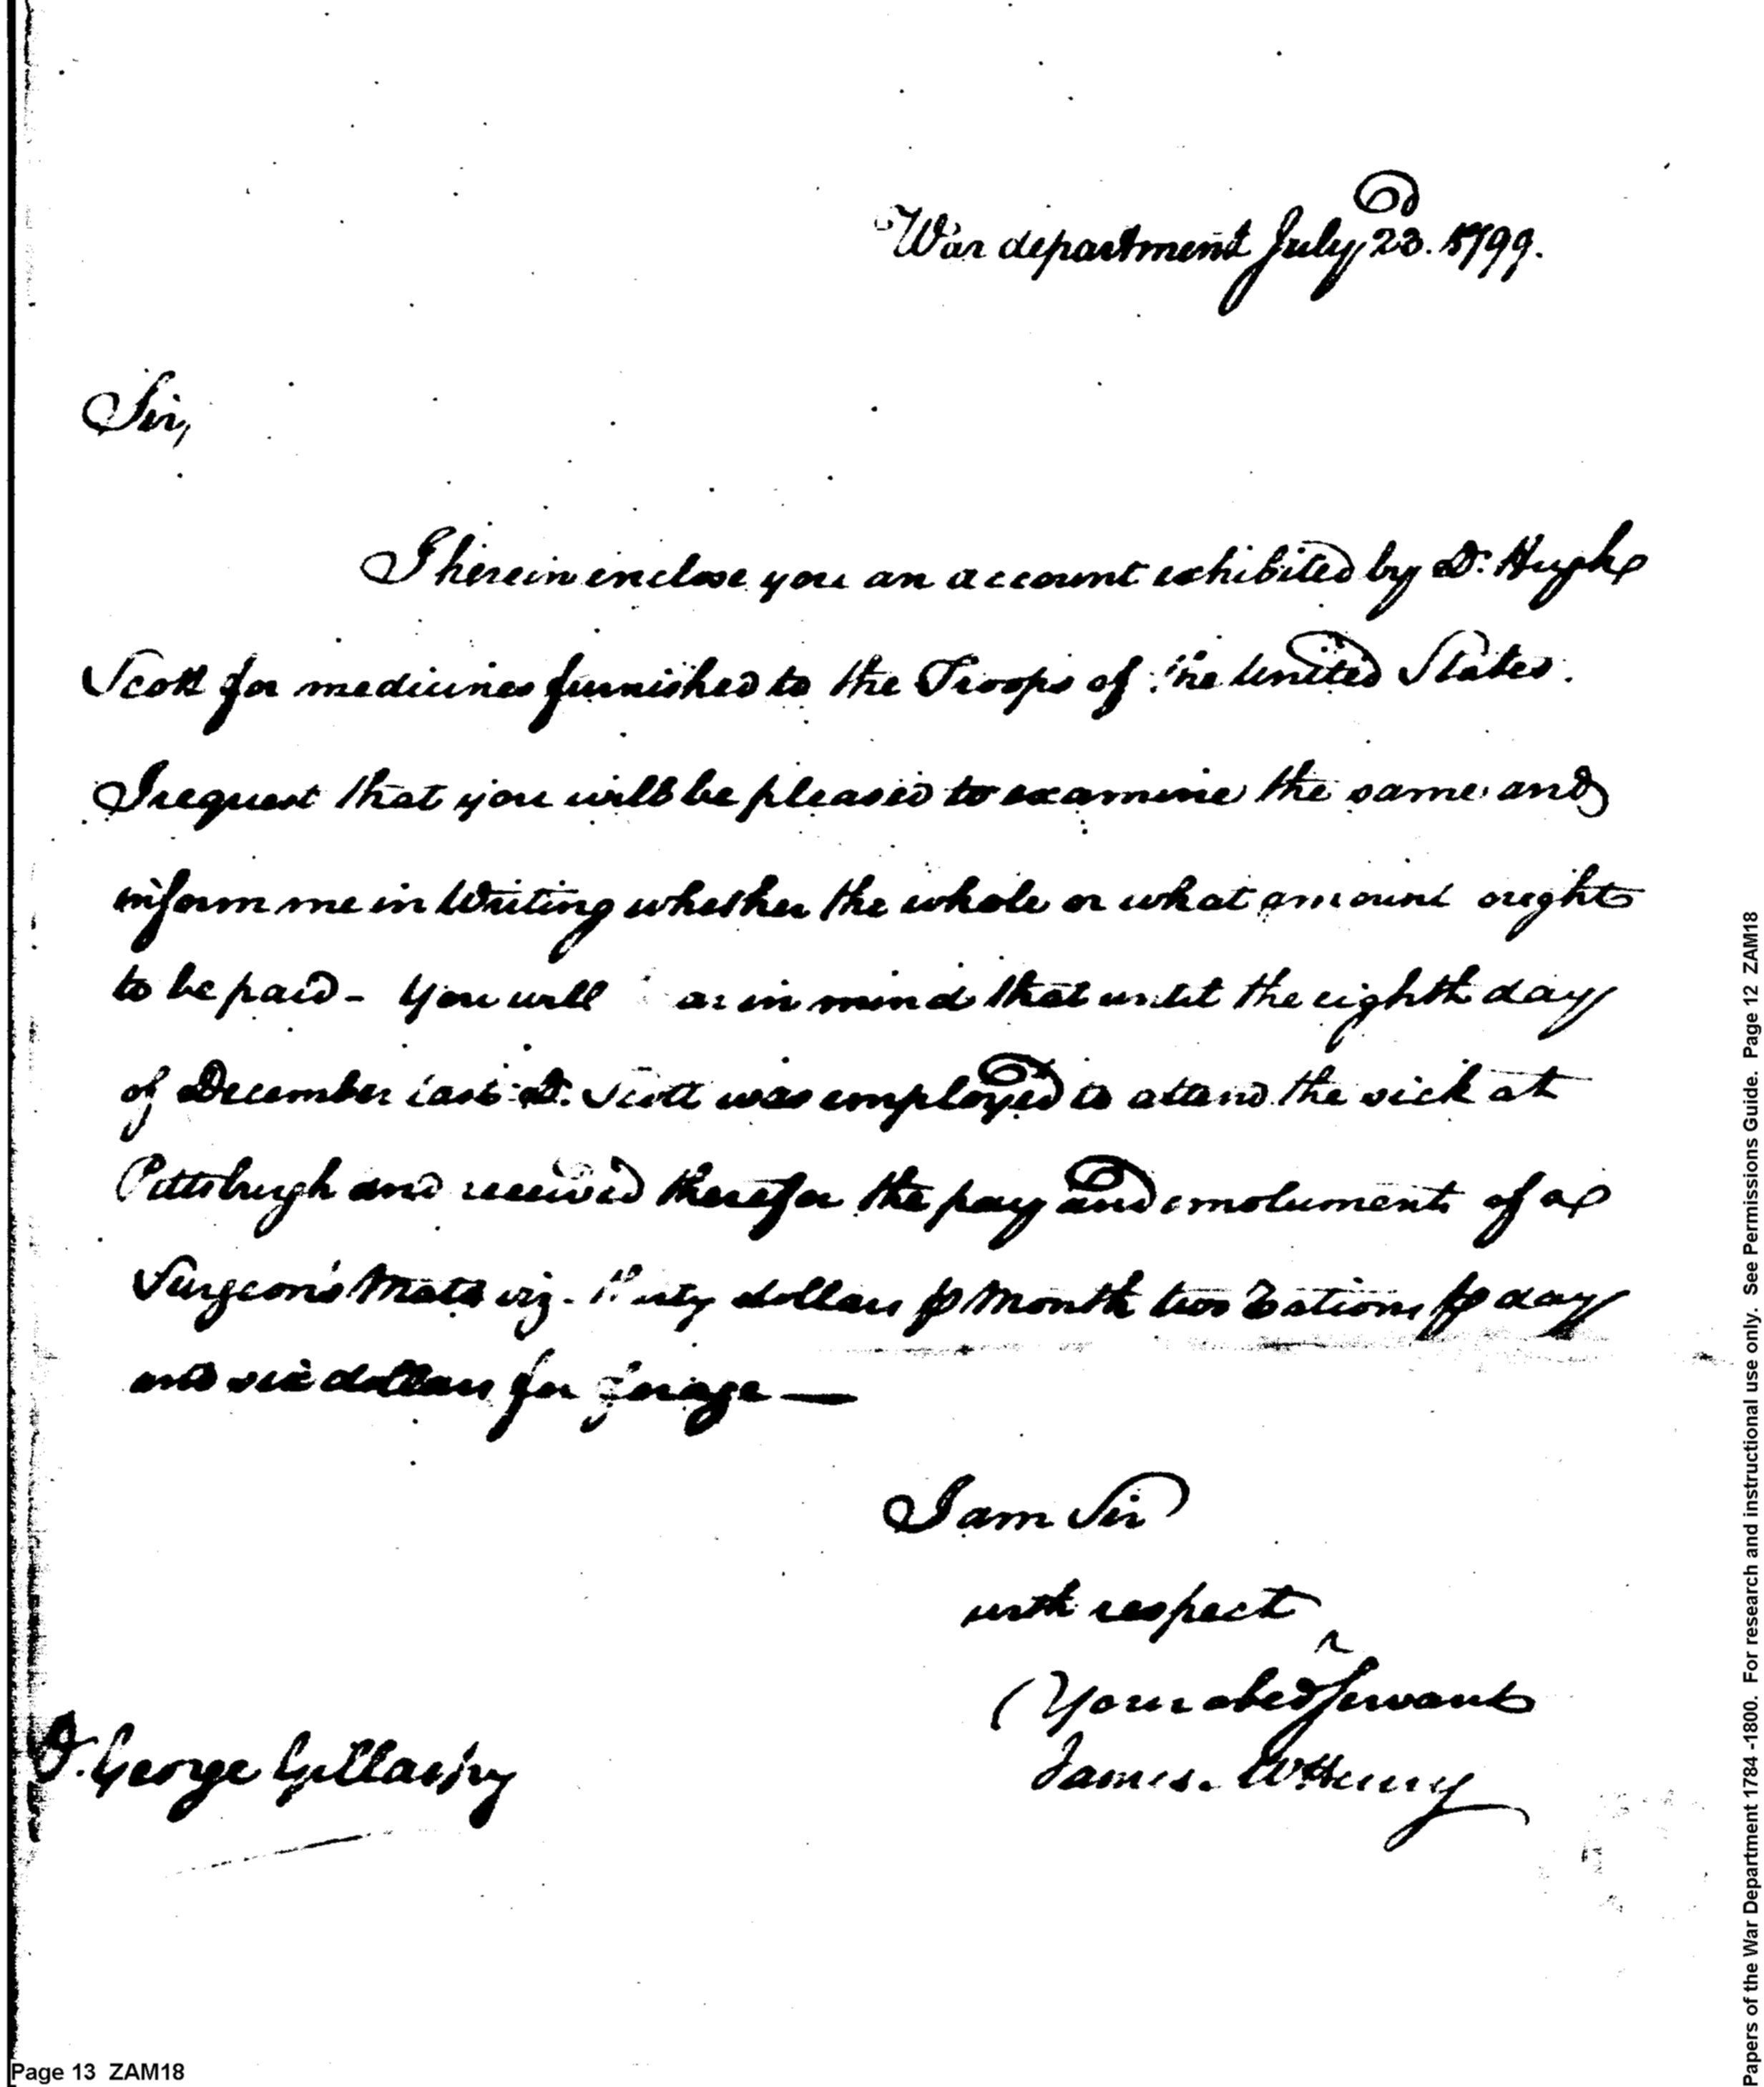 War department July 23. 1799.
Sir,
I herein enclose you an account exhibited by Dr. Hugh
Scott for medicines furnished to the Troops of the United States.
I request that you will be pleased to examine the same and
inform me in Writing whether the whole or what amount ought
to be paid - You will in mind that until the eighth day
of December last Dr. Scott was employed to attend the sick at
Pittsburgh and received therefor the pay and emoluments of a
Surgeon's Mate viz. thirty dollars ⅌ Month two Rations ⅌ day
and six dollars for forage —
I am Sir
with respect
Your obed Servant
James McHenry
Dr. George Gillaspy
Page 13 ZAM18
Papers of the War Department 1784-1800. For research and instructional use only. See Permissions Guide. Page 12 ZAM18